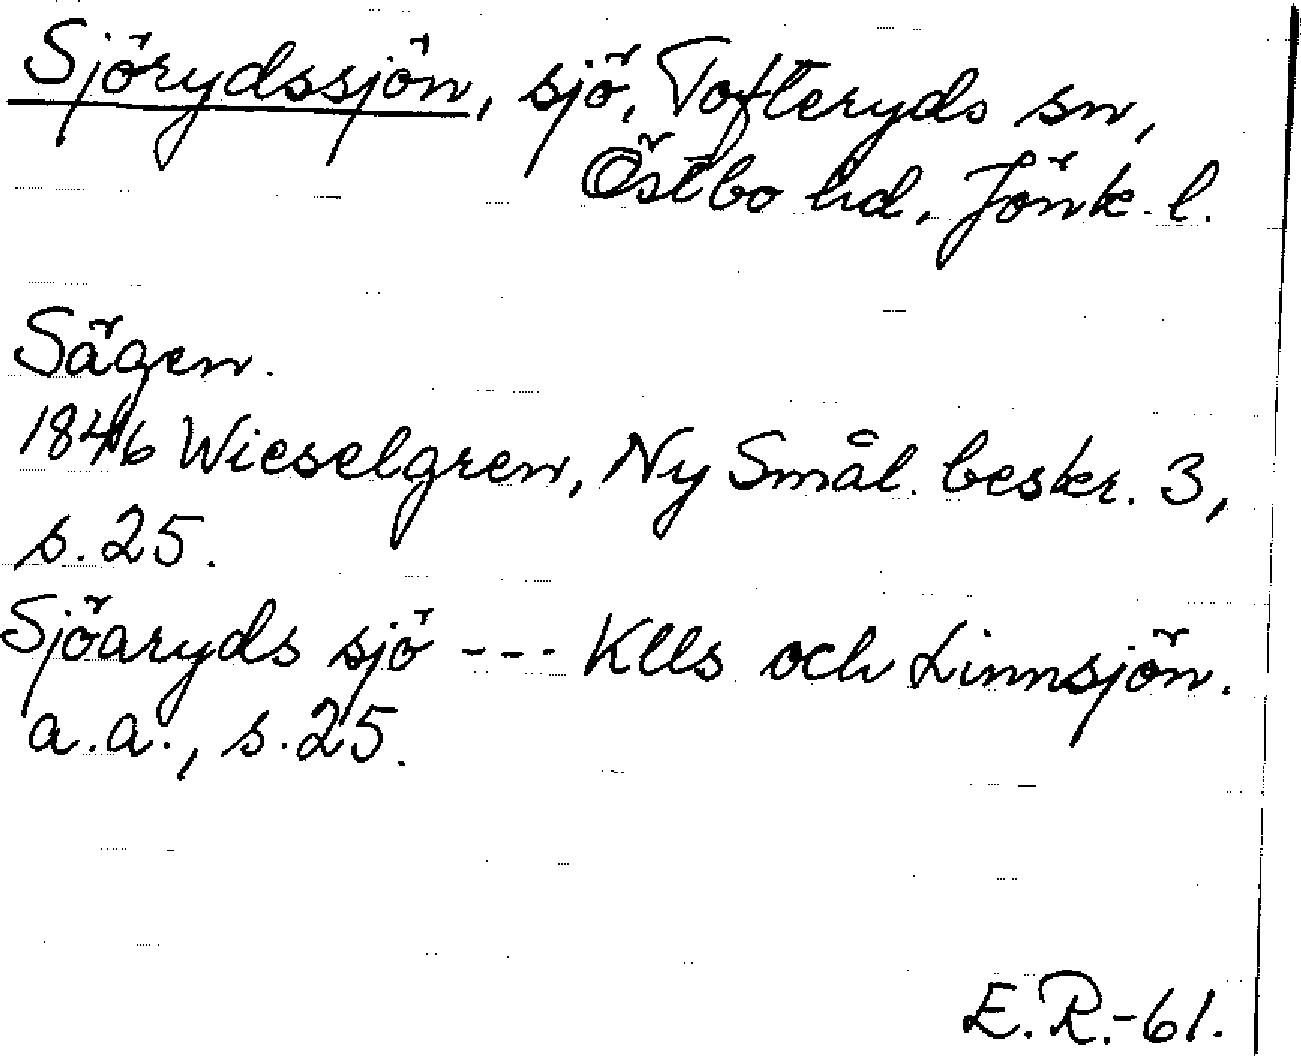 Sjörydssjön, sjö, Tofteryds sn,
Östbo hd, Jönk. l.
Sägen.
1846 Wieselgren, Ny Smål. beskr. 3,
s. 25.
Sjöaryds sjö --- Klls och Linnsjön.
a.a., s. 25.
E.R.-61.